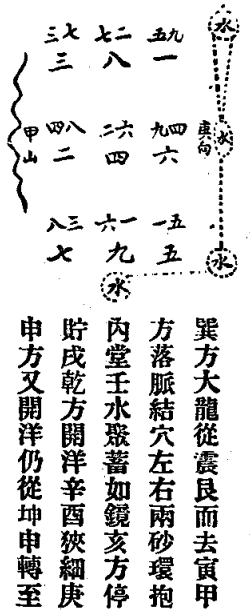 水
三七 七二 五九
三 八 一
甲山 四八 二六 九四 庚向 水
二 四 六
八三 六一 一五
七 九 五 水
水
巽方大龍從震艮而去寅甲
方落脈結穴左右兩砂環抱
內堂壬水聚蓄如鏡亥方停
貯戌乾方開洋辛酉狹細庚
申方又開洋仍從坤申轉至